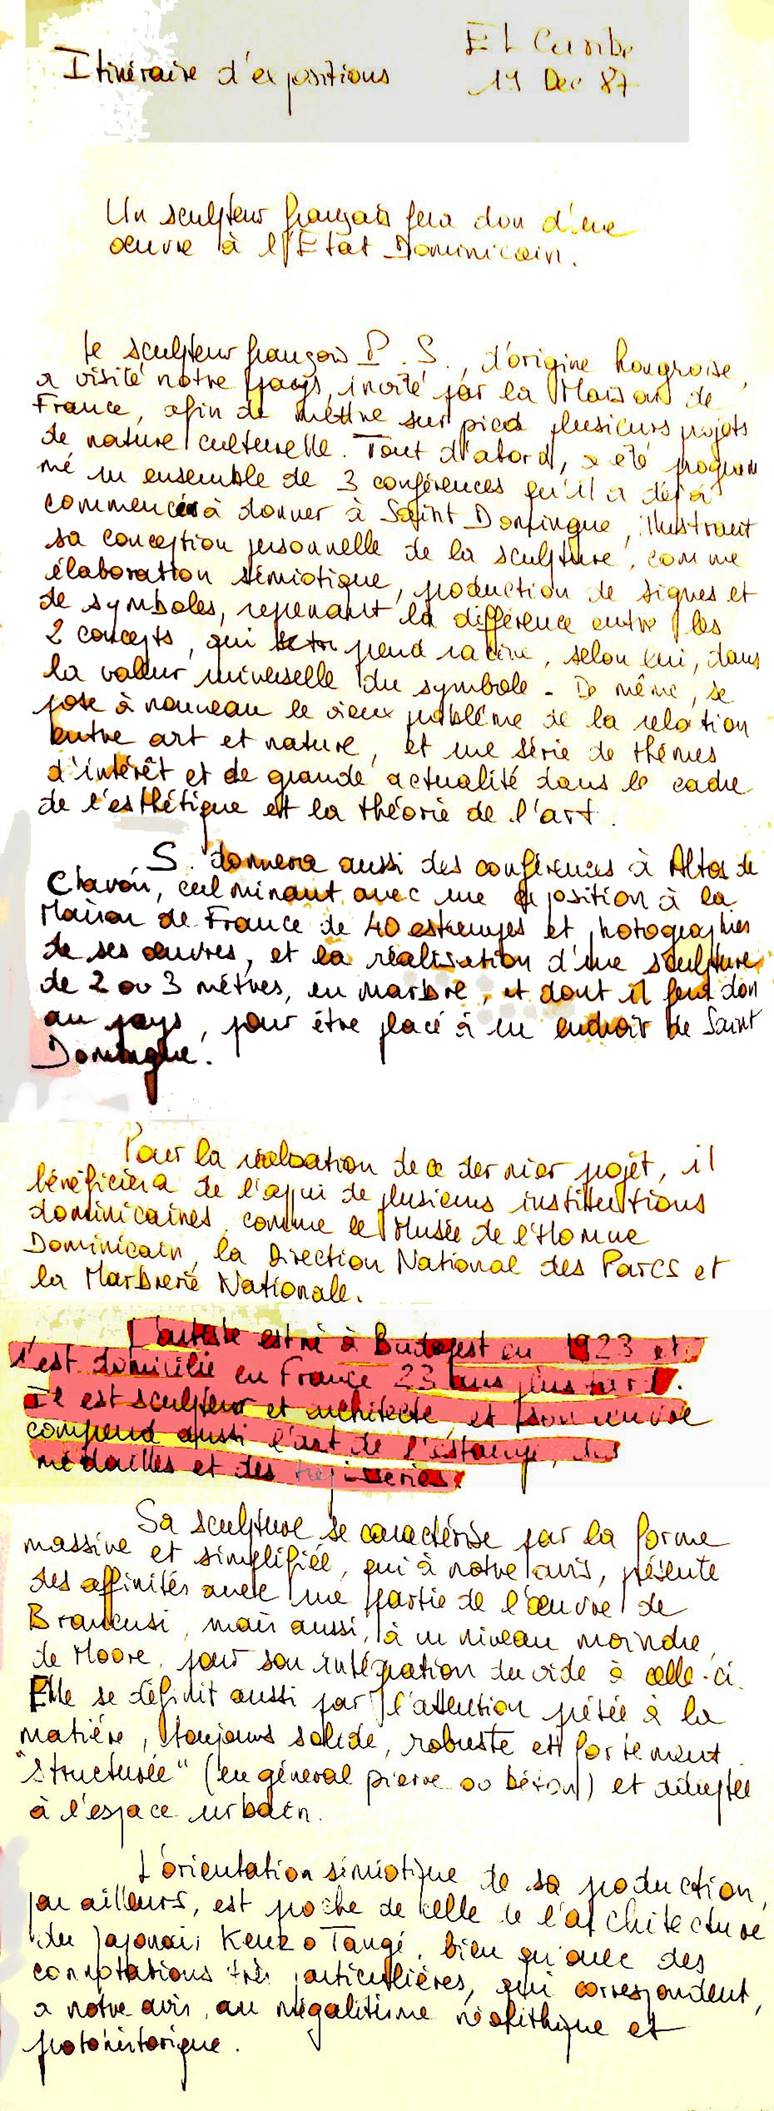 Itinéraire d'expositions
El Caribe
19 Dec 87
Un sculpteur français fera don d'une
œuvre à l'Etat Dominicain.
Le sculpteur français P. S., d'origine hongroise,
a visité notre pays, invité par la Maison de
France, afin de mettre sur pied plusieurs projets
de nature culturelle. Tout d'abord, a été program
mé un ensemble de 3 conférences qu'il a déjà
commencé à donner à Saint Domingue, illustrant
sa conception personnelle de la sculpture, comme
élaboration sémiotique, production de signes et
de symboles, reprenant la différence entre les
2 concepts, qui prend racine, selon lui, dans
la valeur universelle du symbole. De même, se
pose à nouveau le vieux problème de la relation
entre art et nature, et une série de thèmes
d'intérêt et de grande actualité dans le cadre
de l'esthétique et la théorie de l'art.
S. donnera aussi des conférences à Altos de
Chavón, culminant avec une exposition à la
Maison de France de 40 estampes et photographies
de ses œuvres, et la réalisation d'une sculpture
de 2 ou 3 mètres, en marbre, et dont il fera don
au pays, pour être placé à un endroit de Saint
Domingue.
Pour la réalisation de ce dernier projet, il
bénéficiera de l'appui de plusieurs institutions
dominicaines, comme le Musée de l'Homme
Dominicain, la Direction National des Parcs et
la Marbrerie Nationale.
L'artiste est né à Budapest en 1923 et
s'est domicilié en France 23 ans plus tard.
Il est sculpteur et architecte et son œuvre
comprend aussi l'art de l'estampe, des
médailles et des tapisseries.
Sa sculpture se caractérise par la forme
massive et simplifiée, qui à notre avis, présente
des affinités avec une partie de l'œuvre de
Brancusi, mais aussi, à un niveau moindre,
de Moore, pour son intégration du vide à celle-ci.
Elle se définit aussi par l'attention prêtée à la
matière, toujours solide, robuste et fortement
"structurée" (en général pierre ou béton) et adaptée
à l'espace urbain.
L'orientation sémiotique de sa production,
par ailleurs, est proche de celle de l'architecture
du Japonais Kenzo Tangé, bien qu'avec des
connotations très particulières, qui correspondent,
a notre avis, au mégalitisme néolithique et
protohistorique.